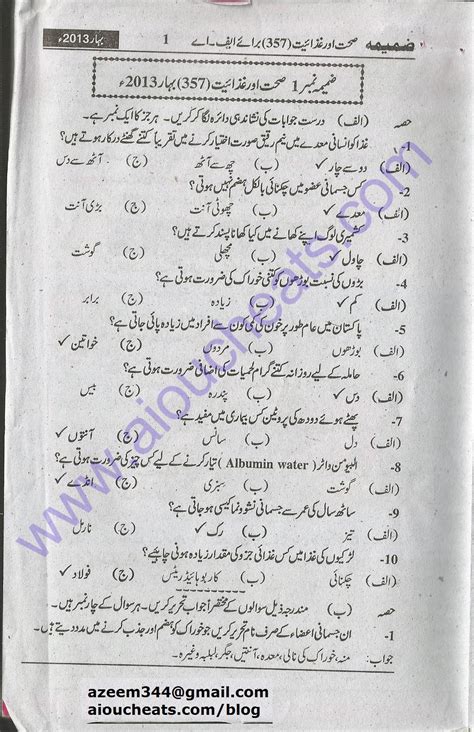 ضمیمہ 1 صحت اور غذائیت (357) برائے ایف۔اے بہار 2013ء
ضمیمہ نمبر 1 صحت اور غذائیت (357) بہار 2013ء
حصہ (الف) درست جوابات کی نشاندہی دائرہ لگا کر کریں۔ ہر جز کا ایک نمبر ہے۔
1- غذا کو انسانی معدے میں نیم رقیق صورت اختیار کرنے میں تقریباً کتنے گھنٹے درکار ہوتے ہیں؟
(الف) دو سے چار ✓ (ب) چھ سے آٹھ (ج) آٹھ سے دس
2- کس جسمانی عضو میں چکنائی بالکل ہضم نہیں ہوتی؟
(الف) معدے ✓ (ب) چھوٹی آنت (ج) بڑی آنت
3- کشمیری لوگ اپنے کھانے میں کیا کھانا پسند کرتے ہیں؟
(الف) چاول ✓ (ب) مچھلی (ج) گوشت
4- بڑوں کی نسبت بوڑھوں کو کتنی خوراک کی ضرورت ہوتی ہے؟
(الف) کم ✓ (ب) زیادہ (ج) برابر
5- پاکستان میں عام طور پر خون کی کمی کون سے افراد میں زیادہ پائی جاتی ہے؟
(الف) بوڑھوں (ب) مردوں (ج) خواتین ✓
6- حاملہ کے لیے روزانہ کتنے گرام لحمیات کی اضافی ضرورت ہوتی ہے؟
(الف) دس ✓ (ب) پندرہ (ج) بیس
7- پھٹے ہوئے دودھ کی پروٹین کس بیماری میں مفید ہے؟
(الف) دل (ب) سانس (ج) آنتوں ✓
8- البیومن واٹر (Albumin water) تیار کرنے کے لیے کس چیز کی ضرورت ہوتی ہے؟
(الف) گوشت (ب) سبزی (ج) انڈے ✓
9- ساٹھ سال کی عمر سے جسمانی نشوونما کیسی ہو جاتی ہے؟
(الف) تیز (ب) رک ✓ (ج) نارمل
10- لڑکیوں کی غذا میں کس غذائی جز کی مقدار زیادہ ہونی چاہیے؟
(الف) چکنائی (ب) کاربوہائیڈریٹس (ج) فولاد ✓
حصہ (ب) مندرجہ ذیل سوالوں کے مختصر جواب تحریر کریں۔ ہر سوال کے چار نمبر ہیں۔
1- ان جسمانی اعضاء کے صرف نام تحریر کریں جو خوراک کو ہضم اور جذب کرنے میں مدد دیتے ہیں۔
جواب: منہ، خوراک کی نالی، معدہ، آنتیں، جگر، لبلبہ وغیرہ۔
www.aioucheats.com
azeem344@gmail.com
aioucheats.com/blog